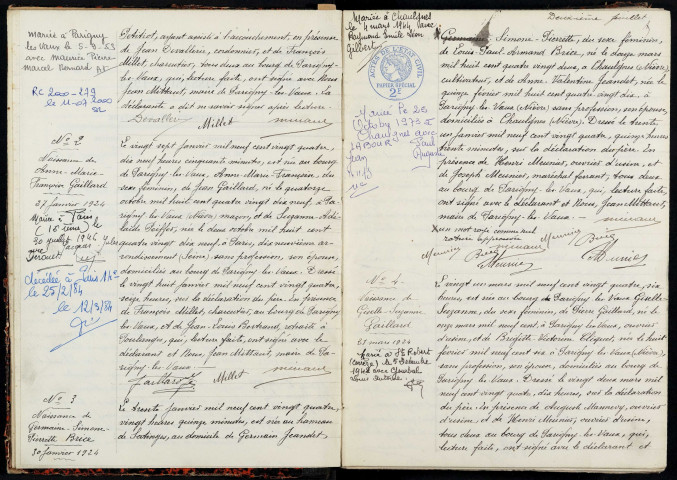 mariée à Parigny
les Vaux le 5-9-53
avec Maurice Pierre
Marcel Renard
RC 2000-299
le 11-07 2000
Nº 2
Naissance de
Anne-Marie-
Françoise Gaillard
27 janvier 1924
Mariée à Paris
(15ème) le
30 juillet 1946
avec Jacques Jules
décédée à Paris 14e
le 25/2/84
le 12/3/84
Nº 3
Naissance de
Germaine-Simone-
Pierrette Brice
30 janvier 1924
ayant assisté à l'accouchement, en présence
de Jean Devallerie, cordonnier, et de François
Millet, charcutier, tous deux au bourg de Parigny-
les-Vaux, qui, lecture faite, ont signé avec Nous
Jean Mittaut, maire de Parigny-les-Vaux. La
déclarante a dit ne savoir signer après lecture.
Millet
Le vingt sept janvier mil neuf cent vingt quatre,
dix neuf heures cinquante minutes, est née au bourg
de Parigny-les-Vaux, Anne-Marie-Françoise, du
sexe féminin, de Jean Gaillard, né le quatorze
octobre mil huit cent quatre vingt dix neuf, à Pa-
rigny-les-Vaux (Nièvre) maçon, et de Suzanne-Adé-
laïde née le deux octobre mil huit cent
quatre vingt dix neuf à Paris, dix neuvième ar-
rondissement (Seine) sans profession, son épouse,
domiciliés au bourg de Parigny-les-Vaux. Dressé
le vingt huit janvier mil neuf cent vingt quatre,
seize heures, sur la déclaration du père. En présence
de François Millet, charcutier, au bourg de Parigny
les Vaux, et de Jean-Louis Bertrand, retraité à
Soulangy, qui, lecture faite, ont signé avec le
déclarant et Nous, Jean Mittaut, maire de Pa-
rigny-les-Vaux.
Gaillard Millet
Le trente janvier mil neuf cent vingt quatre,
vingt heures quinze minutes, est née au hameau
de Satinges, au domicile de Germain Jeandet,
Deuxième feuillet
Mariée à Chaulgnes
le 4 mars 1944 avec
Raymond Emile Léon
Gilbert
ACTES DE L'ÉTAT CIVIL
PAPIER SPÉCIAL
2F
Mariée le 26
Octobre 1973 à
Chaulgnes avec
Paul
Auguste
Jean
Nº 4
Naissance de
Gisèle-Suzanne
Gaillard
21 mars 1924
Simone-Pierrette, du sexe féminin,
de Louis-Paul-Armand Brice, né le douze mars
mil huit cent quatre vingt deux, à Chaulgnes (Nièvre)
cultivateur, et de Anne-Valentine Jeandet, née le
quinze février mil huit cent quatre vingt dix, à
Parigny-les-Vaux (Nièvre) sans profession, son épouse,
domiciliés à Chaulgnes (Nièvre). Dressé le trente
un janvier mil neuf cent vingt quatre, quinze heures
trente minutes, sur la déclaration du père. En
présence de Henri Meunier, ouvrier d'usine, et
de Joseph Meunier, maréchal ferrant, tous deux
au bourg de Parigny-les-Vaux, qui, lecture faite,
ont signé avec le déclarant et Nous, Jean Mittaut,
maire de Parigny-les-Vaux.
un mot rayé comme nul
rature approuvée
Meunier Brice Meunier
Le vingt un mars mil neuf cent vingt quatre, six
heures, est née au bourg de Parigny-les-Vaux Gisèle-
Suzanne, du sexe féminin, de Pierre Gaillard, né le
mars mil neuf cent, à Parigny-les-Vaux, ouvrier
d'usine, et de Brigitte-Victorine née le huit
février mil neuf cent six à Parigny-les-Vaux (Nièvre)
sans profession, son épouse, domiciliés au bourg de
Parigny-les-Vaux. Dressé le vingt deux mars mil
neuf cent vingt quatre, dix heures, sur la déclaration
du père. En présence de Auguste ouvrier
d'usine, et de Henri Meunier, ouvrier d'usine,
tous deux au bourg de Parigny-les-Vaux, qui,
lecture faite, ont signé avec le déclarant et